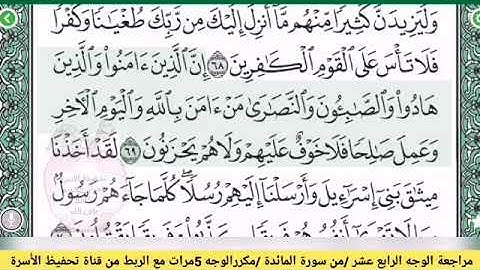 وَلَيَزِيدَنَّ كَثِيرًا مِّنْهُم مَّآ أُنزِلَ إِلَيْكَ مِن رَّبِّكَ طُغْيَٰنًا وَكُفْرًا
فَلَا تَأْسَ عَلَى ٱلْقَوْمِ ٱلْكَٰفِرِينَ ٦٨ إِنَّ ٱلَّذِينَ ءَامَنُوا۟ وَٱلَّذِينَ
هَادُوا۟ وَٱلصَّٰبِـُٔونَ وَٱلنَّصَٰرَىٰ مَنْ ءَامَنَ بِٱللَّهِ وَٱلْيَوْمِ ٱلْءَاخِرِ
وَعَمِلَ صَٰلِحًا فَلَا خَوْفٌ عَلَيْهِمْ وَلَا هُمْ يَحْزَنُونَ ٦٩ لَقَدْ أَخَذْنَا
مِيثَٰقَ بَنِىٓ إِسْرَٰٓءِيلَ وَأَرْسَلْنَآ إِلَيْهِمْ رُسُلًا كُلَّمَا جَآءَهُمْ رَسُولٌۢ
مراجعة الوجه الرابع عشر /من سورة المائدة /مكررالوجه 5مرات مع الربط من قناة تحفيظ الأسرة